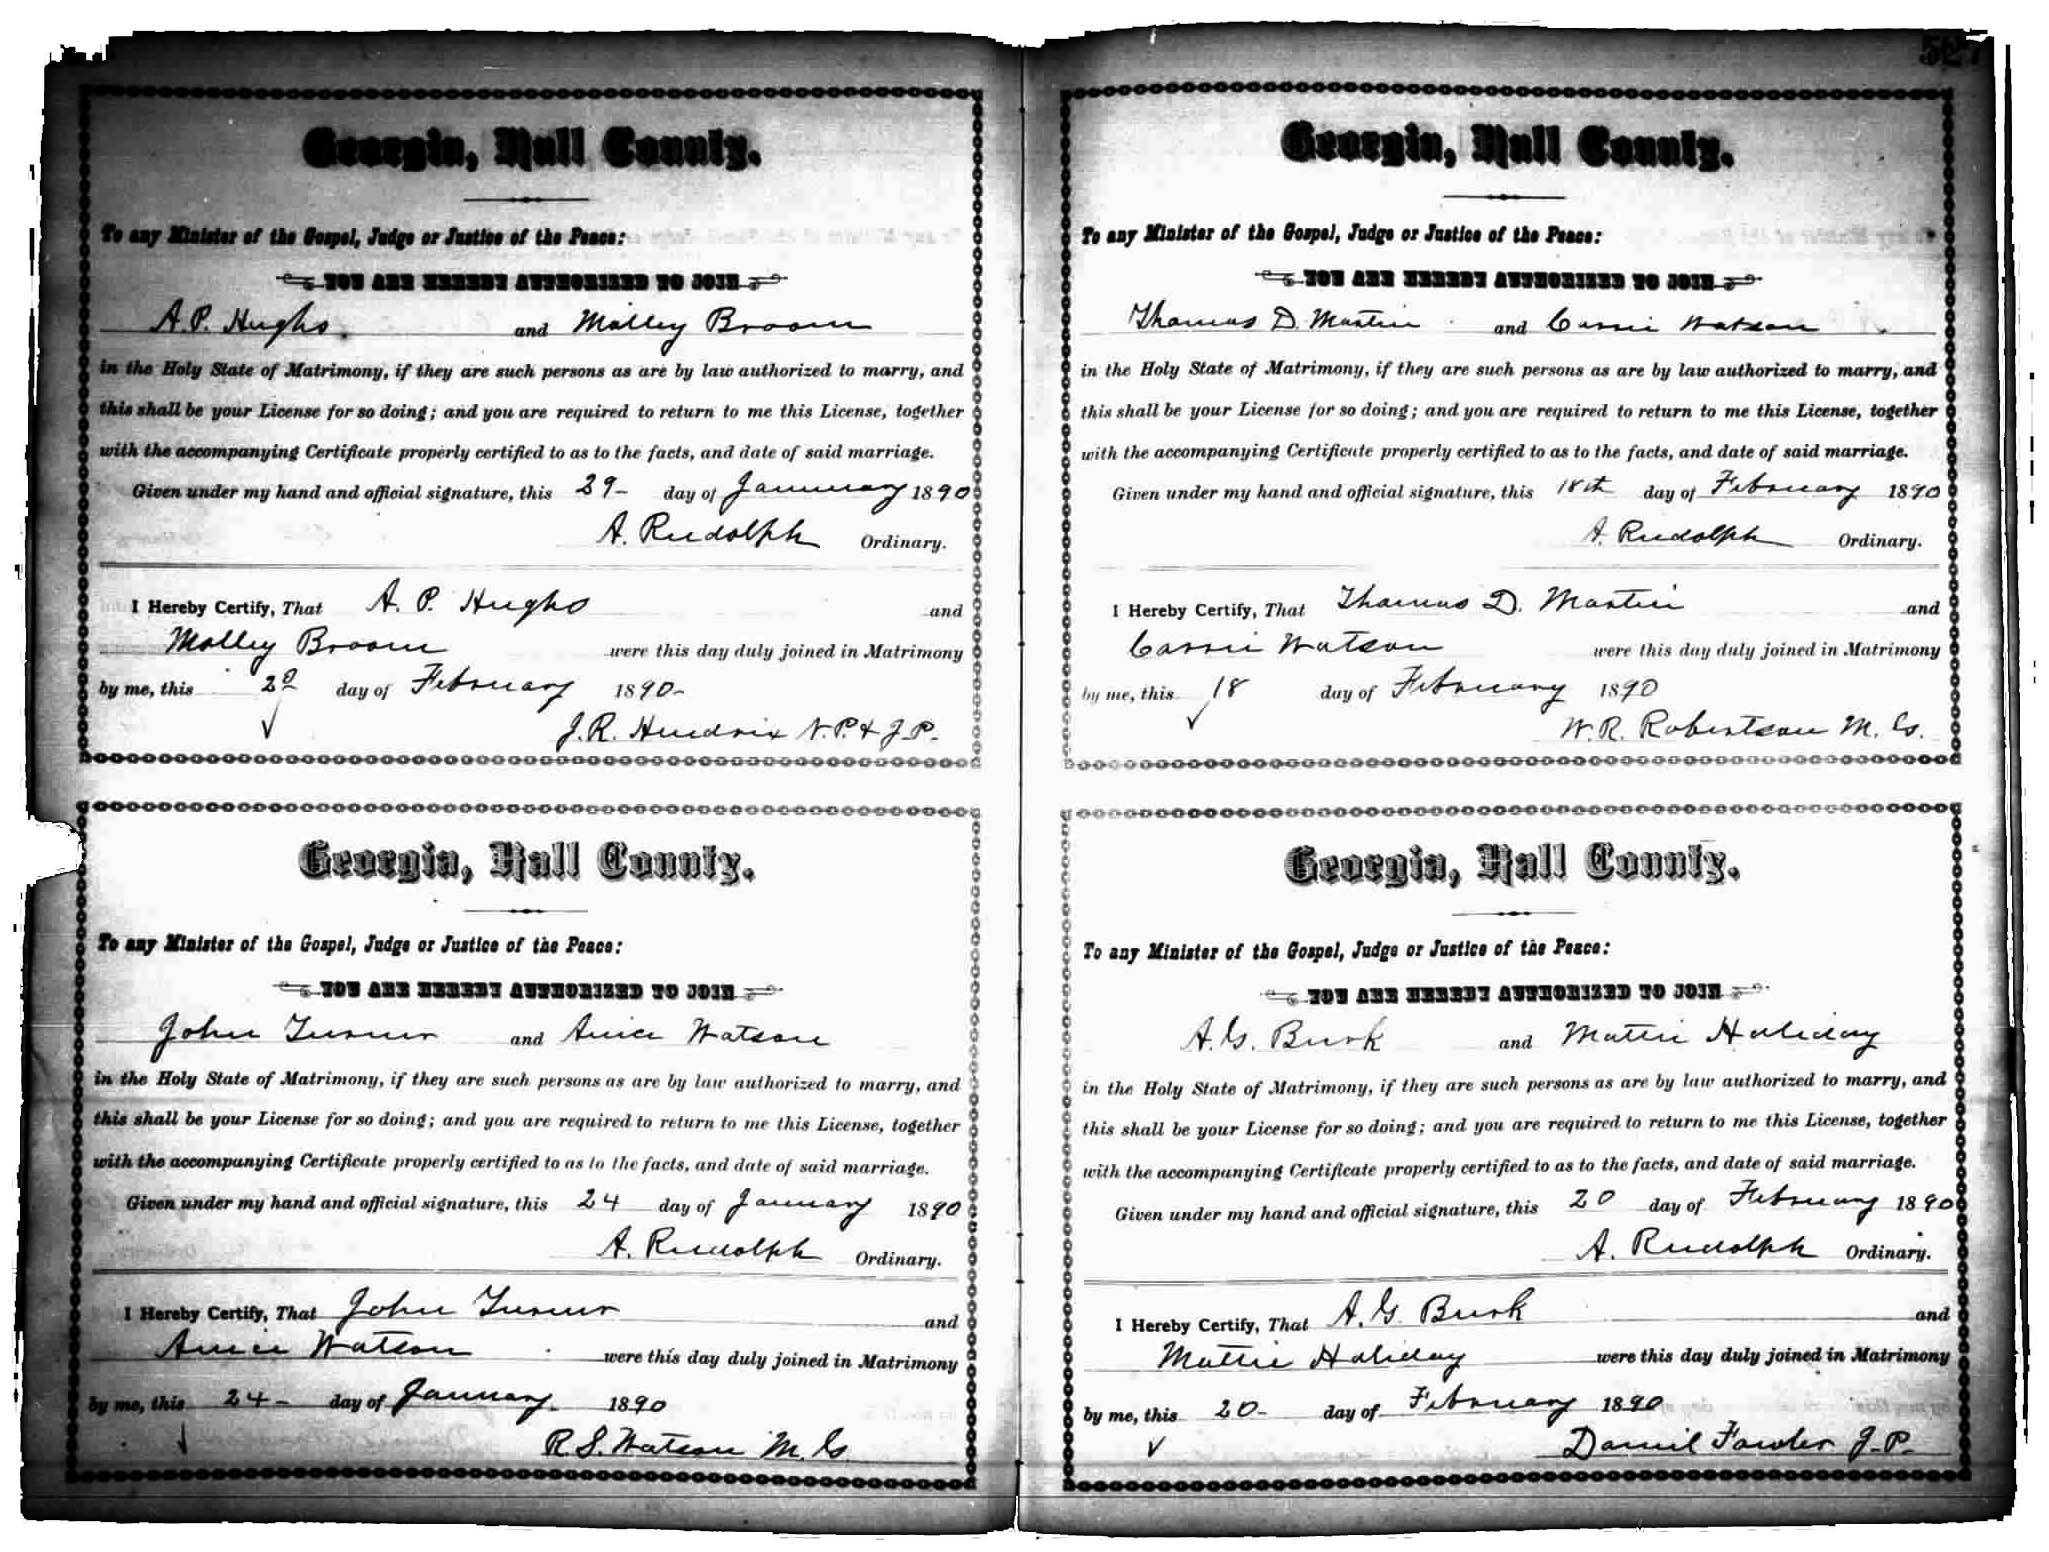 527
Georgia, Hall County.
To any Minister of the Gospel, Judge or Justice of the Peace:
YOU ARE HEREBY AUTHORIZED TO JOIN
A. P. Hughs and Molley Broom
in the Holy State of Matrimony, if they are such persons as are by law authorized to marry, and
this shall be your License for so doing; and you are required to return to me this License, together
with the accompanying Certificate properly certified to as to the facts, and date of said marriage.
Given under my hand and official signature, this 29- day of January 1890
A. Rudolph Ordinary.
I Hereby Certify, That A. P. Hughs and
Molley Broom were this day duly joined in Matrimony
by me, this 2d day of February 1890-
J. R. Hendrix N. P. & J. P.
Georgia, Hall County.
To any Minister of the Gospel, Judge or Justice of the Peace:
YOU ARE HEREBY AUTHORIZED TO JOIN
John Turner and Anice Watson
in the Holy State of Matrimony, if they are such persons as are by law authorized to marry, and
this shall be your License for so doing; and you are required to return to me this License, together
with the accompanying Certificate properly certified to as to the facts, and date of said marriage.
Given under my hand and official signature, this 24 day of January 1890
A. Rudolph Ordinary.
I Hereby Certify, That John Turner and
Anice Watson were this day duly joined in Matrimony
by me, this 24- day of January 1890
R. S. Watson M. G.
Georgia, Hall County.
To any Minister of the Gospel, Judge or Justice of the Peace:
YOU ARE HEREBY AUTHORIZED TO JOIN
Thomas D. Martin and Carrie Watson
in the Holy State of Matrimony, if they are such persons as are by law authorized to marry, and
this shall be your License for so doing; and you are required to return to me this License, together
with the accompanying Certificate properly certified to as to the facts, and date of said marriage.
Given under my hand and official signature, this 18th day of February 1890
A. Rudolph Ordinary.
I Hereby Certify, That Thomas D. Martin and
Carrie Watson were this day duly joined in Matrimony
by me, this 18 day of February 1890
W. R. Robertson M. G.
Georgia, Hall County.
To any Minister of the Gospel, Judge or Justice of the Peace:
YOU ARE HEREBY AUTHORIZED TO JOIN
A. G. Burk and Mattie Haliday
in the Holy State of Matrimony, if they are such persons as are by law authorized to marry, and
this shall be your License for so doing; and you are required to return to me this License, together
with the accompanying Certificate properly certified to as to the facts, and date of said marriage.
Given under my hand and official signature, this 20 day of February 1890
A. Rudolph Ordinary.
I Hereby Certify, That A. G. Burk and
Mattie Haliday were this day duly joined in Matrimony
by me, this 20- day of February 1890
Daniel Fowler J. P.